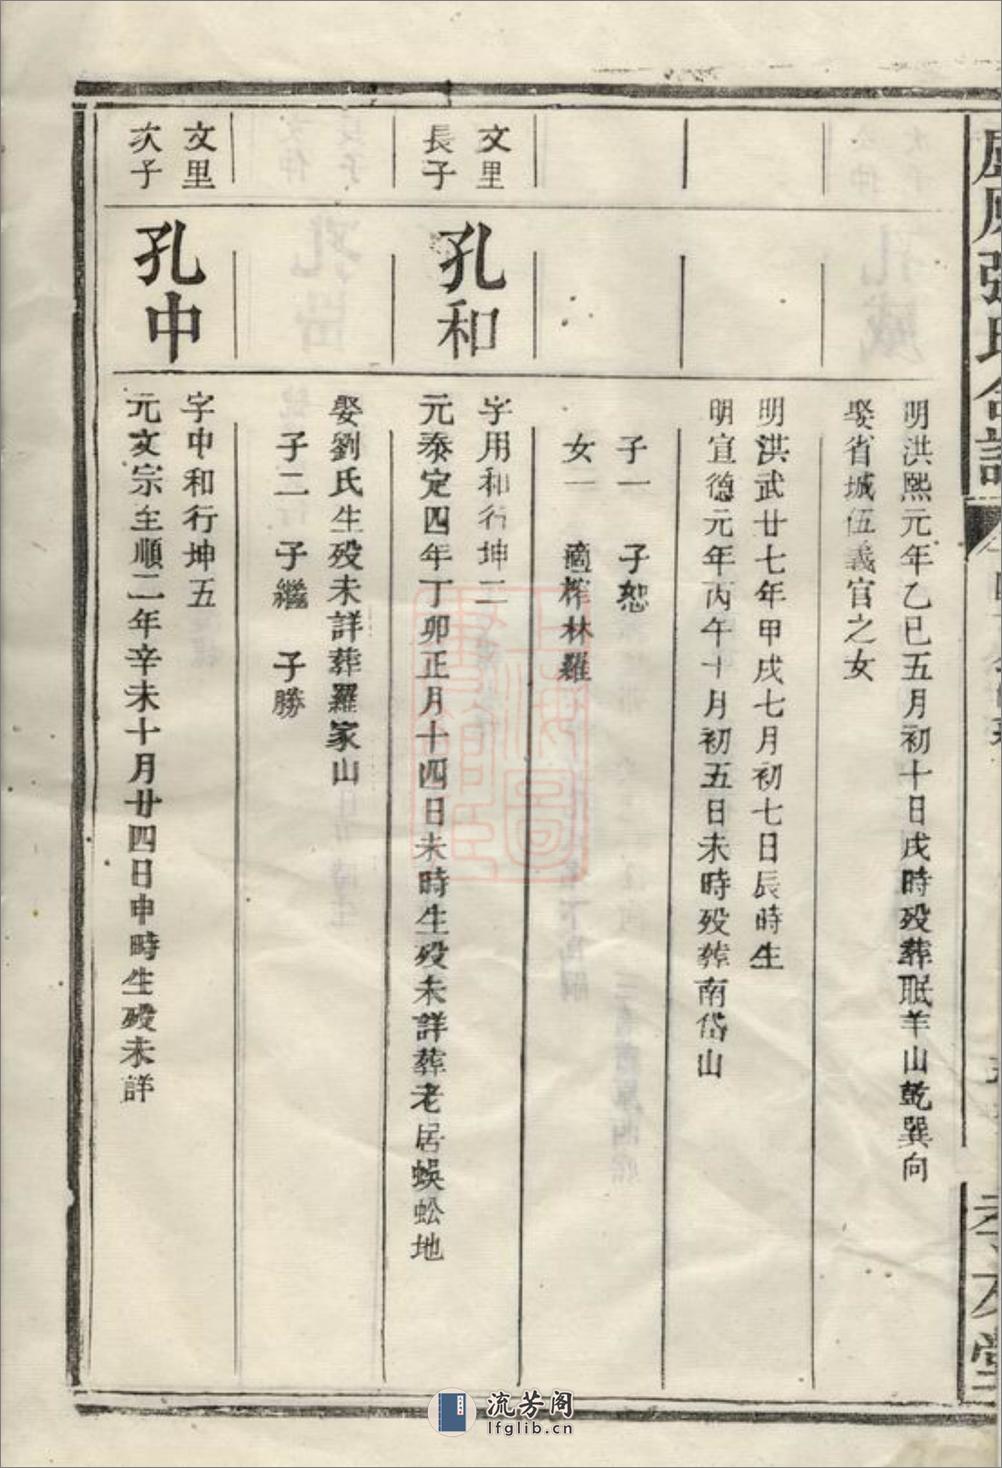 明洪熙元年乙巳五月初十日戌時殁葬眠羊山乾巽向
娶省城伍義官之女
明洪武廿七年甲戌七月初七日辰時生
明宣德元年丙午十月初五日未時殁葬南岱山
子一 子恕
女一 適榨林羅
文里
長子
孔和
字用和行坤二
元泰定四年丁卯正月十四日未時生殁未詳葬老居蜈蚣地
娶劉氏生殁未詳葬羅家山
子二 子繼 子勝
文里
次子
孔中
字中和行坤五
元文宗至順二年辛未十月廿四日申時生殁未詳
流芳阁
lfglib.cn